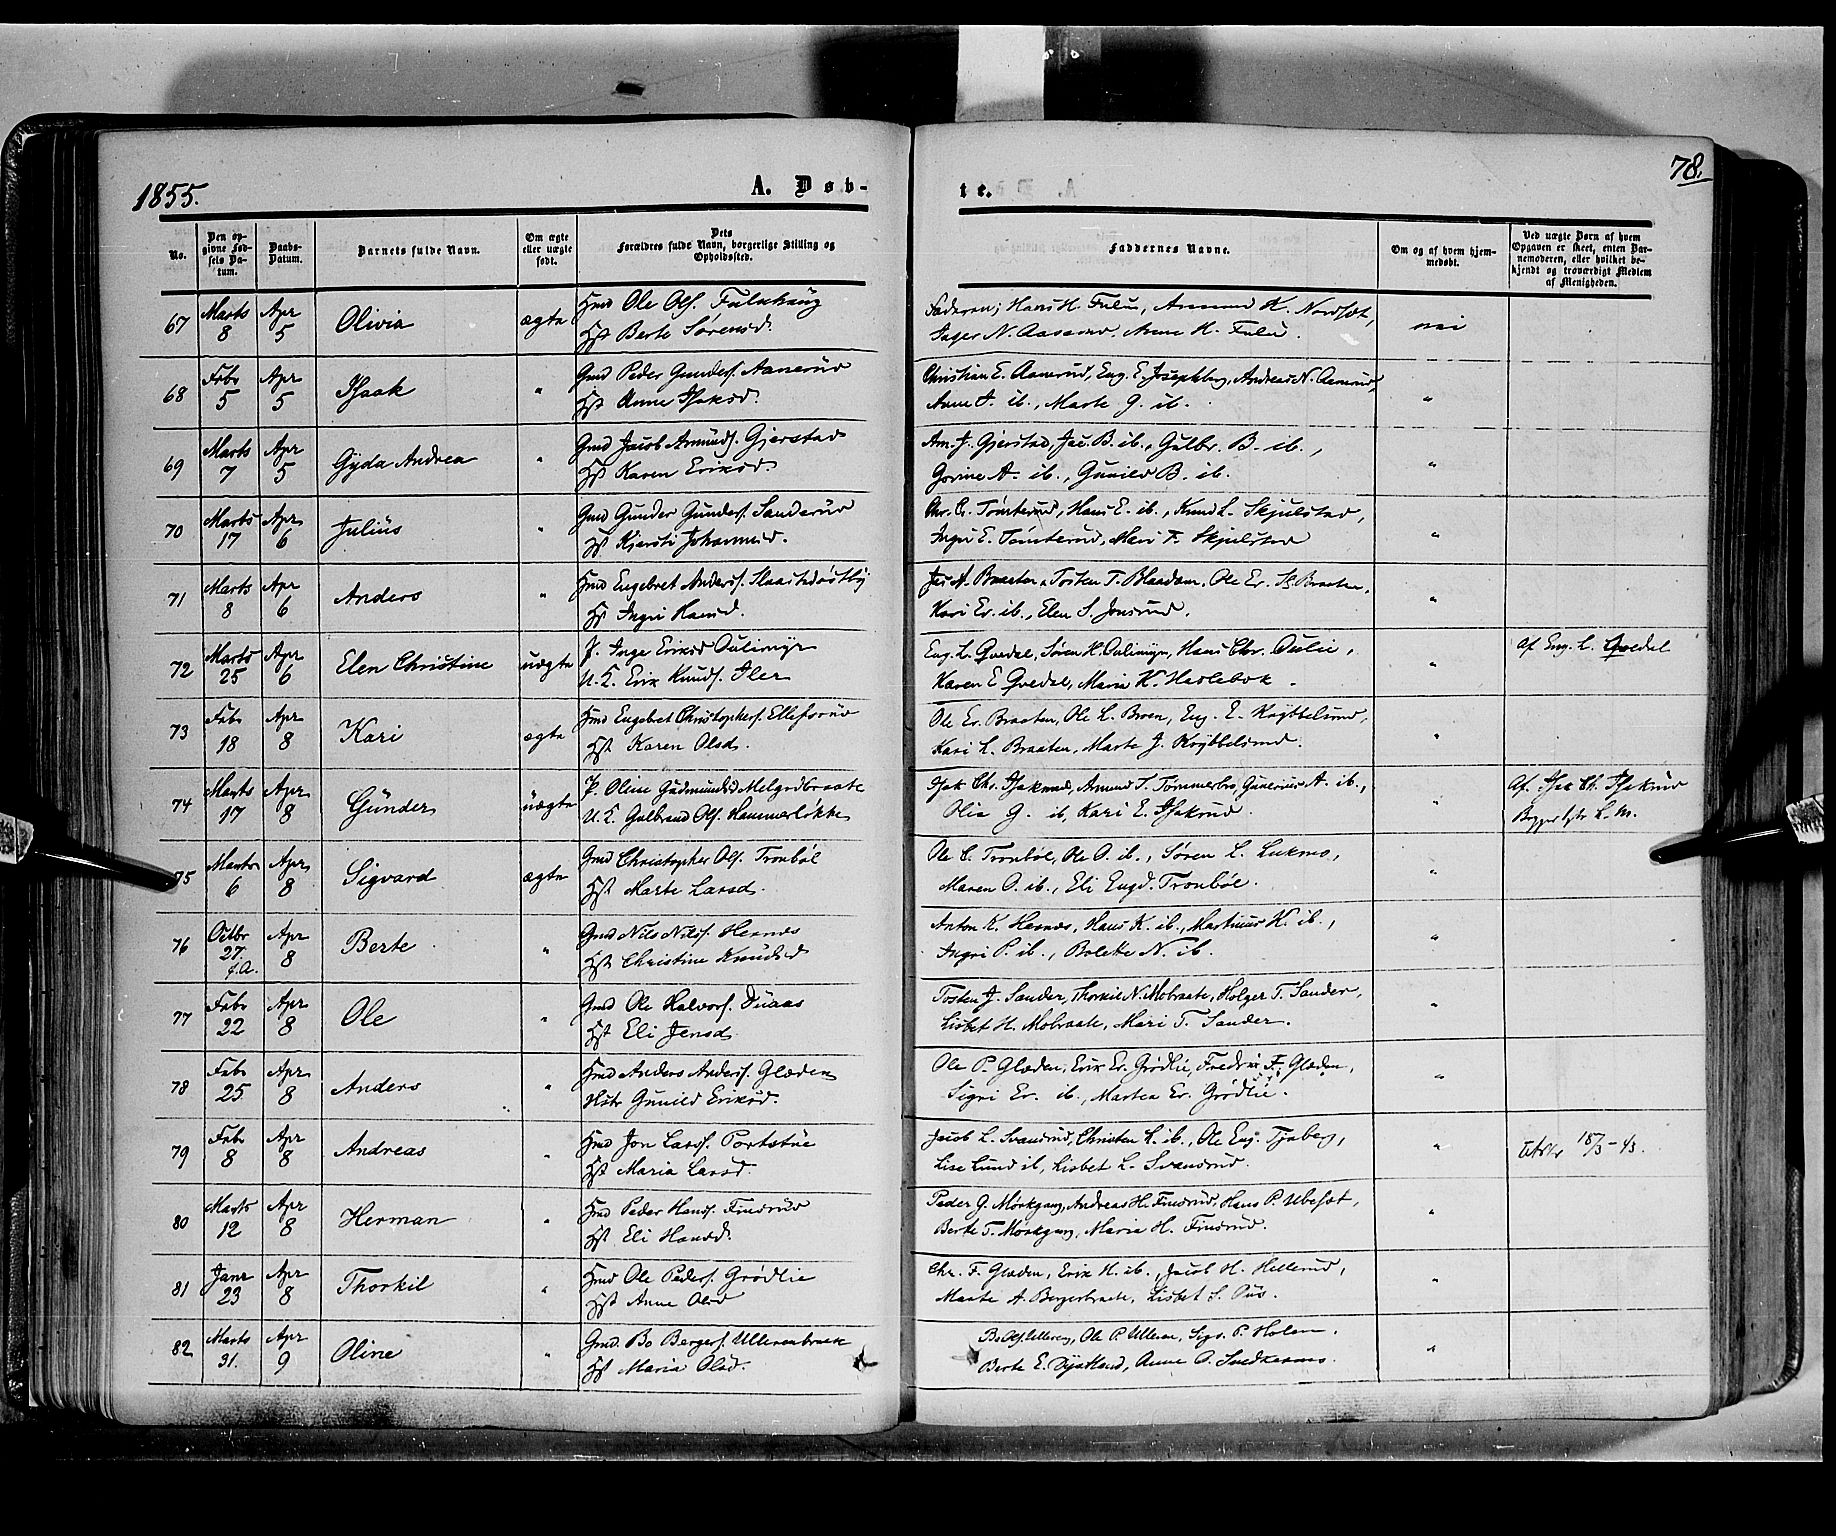 1855.
A. Døb-
te.
78.
No.
Den opgivne Fødsels Datum.
Daabs-Datum.
Barnets fulde Navn.
Om ægte eller uægte født.
Dets Forældres fulde Navn, borgerlige Stilling og Opholdssted.
Faddernes Navne.
Om og af hvem hjemmedøbt.
Ved uægte Børn af hvem Opgaven er skeet, enten Barnemoderen, eller hvilket bekjendt og troværdigt Medlem af Menigheden.
67 Marts 8 Apr 5 Olivia ægte Hmd Ole Ols.
Hst Berte Sørensd.
Faderen; Hans H. Fulu, Amund K. Nordsæt,
N. Aaserud, Anne H. Fulu. nei
68 Febr 5 Apr 5 Isaak " Gmd Peder Gunders. Aanerud
Hst Anne Isaksd.
Christian E. Aanerud, Eng. E. Josephberg, Andreas N. Aanerud,
Anne I. ib., Marte G. ib. "
69 Marts 7 Apr 5 Gyda Andrea " Gmd Jacob Amunds. Gjerstad
Hst Karen Eriksd.
Am. J. Gjerstad, Jac. B. ib., Gulbr. B. ib.,
Gorine A. ib., Gunild B. ib. "
70 Marts 17 Apr 6 Julius " Gmd Gunder Gunders. Sanderud
Hst Kjersti Johannesd.
Chr. C. Tomterud, Hans E. ib., Knud L. Skjulstad,
Ingri E. Tomterud, Mari T. Skjulstad "
71 Marts 8 Apr 6 Anders " Hmd Engebret Anders.
Hst Ingri Hansd.
A. Braaten, Tosten T. Blaadam, Ole Er. Braaten,
Kari Er. ib., Elen S. Jonsrud. "
72 Marts 25 Apr 6 Elen Christine uægte P. Inge Eriksd Oulimyr
U. K. Erik Knuds. Iler
Eng. L. Qvedal, Søren H. Oulimyr, Hans Chr. Oulie,
Karen E. Qvedal, Maria K. Haslebæk. "
Af Eng. L. Qvedal
73 Febr 18 Apr 8 Kari ægte Hmd Engebret Christophers. Ellefsrud
Hst Karen Olsd.
Ole Er. Braaten, Ole L. Broen, Eng. E. Knibbelsrud,
Kari L. Braaten, Marte J. Knibbelsrud. "
74 Marts 17 Apr 8 Günder uægte P. Oline Gudmundsd Melgaardbraate
U. K. Gulbrand Ols. Hammerløkke
Isak Chr. Isaksrud, Amund T. Tømmerbro, Gunerius A. ib.,
Olia G. ib, Kari E. Isaksrud. "
Af. Isac Ch. Isaksrud
L. M.
75 Marts 6 Apr 8 Sigvard ægte Gmd Christopher Ols. Tronbøl
Hst Marte Larsd.
Ole C. Tronbøl, Ole O. ib., Søren L. Lukmo,
Maren O. ib., Eli Engd. Tronbøl. "
76 Octbr 27. f.A. Apr 8 Berte " Gmd Nils Nils. Hernes
Hst Christine Knudsd
Anton K. Hernes, Hans K. ib., Martinus K. ib.,
Ingri P. ib., Bolette N. ib. "
77 Febr 22 Apr 8 Ole " Gmd Ole Halvors. Duaas
Hst Eli Jensd
Tosten J. Sander, Thorkil N. Mobraate, Holger T. Sander,
Lisbet H. Mobraate, Mari T. Sander. "
78 Febr 25 Apr 8 Anders " Hmd Anders Anders. Glæden
Hstr Gunild Eriksd.
Ole P. Glæden, Erik Er. Grødlie, Fredrik F. Glæden,
Sigri Er. ib., Marten Er. Grødlie. "
79 Febr 8 Apr 8 Andreas " Hmd Jon Larss. Portstue
Hst Maria Larsd.
Jacob L. Svansrud, Christen L. ib., Ole Eng. Tjuberg,
Lise Lund ib, Lisbet L. Svansrud. "
Attst 18/5-43.
80 Marts 12 Apr 8 Herman " Hmd Peder Hans. Finsrud
Hst Eli Hansd.
Peder G. Mørkgang, Andreas H. Finsrud, Hans P. Ubesæt,
Berte T. Mørkgang, Maria H. Finsrud. "
81 Janr 23 Apr 8 Thorkil " Hmd Ole Peders. Grødlie
Hst Anne Olsd
Chr. F. Glæden, Erik H. ib., Jacob H. Hellerud,
Marte A. Bergerbraate, Lisbet S. "
82 Marts 31. Apr 9 Oline " Gmd. Bo Bergers. Ullerenbraaten
Hst Maria Olsd.
Ole P. Ulleren, Sigv. P. Holen.
Berte E. Dystland, Anne O. Snedkermo. "